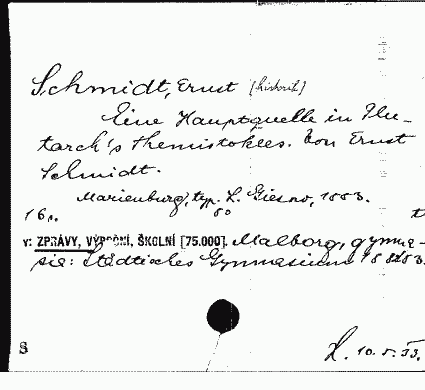 Schmidt, Ernst (historik)
Eine Hauptquelle in Plu-
tarch's Themistokles. Von Ernst
Schmidt.
Marienburg, typ. L. Giesow, 1883.
16 s. 8o
v: ZPRÁVY, VÝROČNÍ, ŠKOLNÍ [75.000]. Malborg, gymna-
sie: Städtisches Gymnasium 1883.
S
10.5.53.